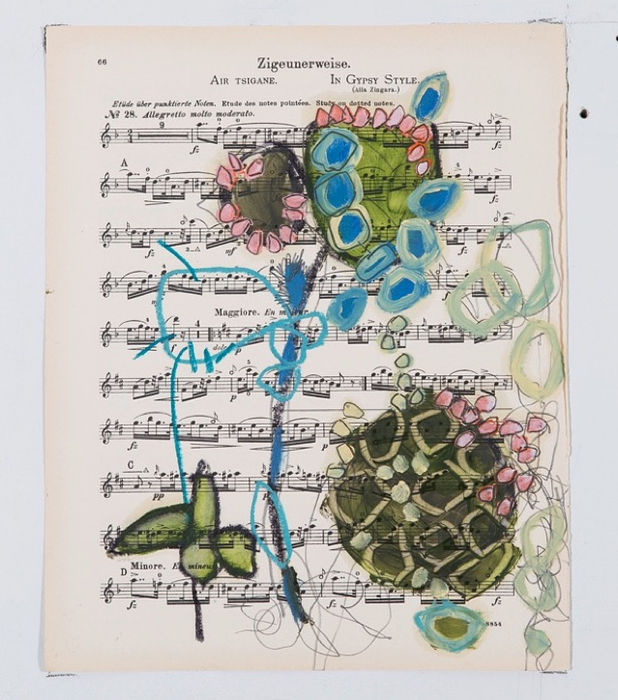 66
Zigeunerweise.
AIR TSIGANE. IN GYPSY STYLE.
(Alla Zingara.)
Etüde über punktierte Noten. Etude des notes pointées. Study on dotted notes.
№ 28. Allegretto molto moderato.
fz
A
fz
fz mf fz
Maggiore. En
f dolce p
fz
fz p
C
pp fz
fz
D Minore. En mineur
fz fz fz
8854